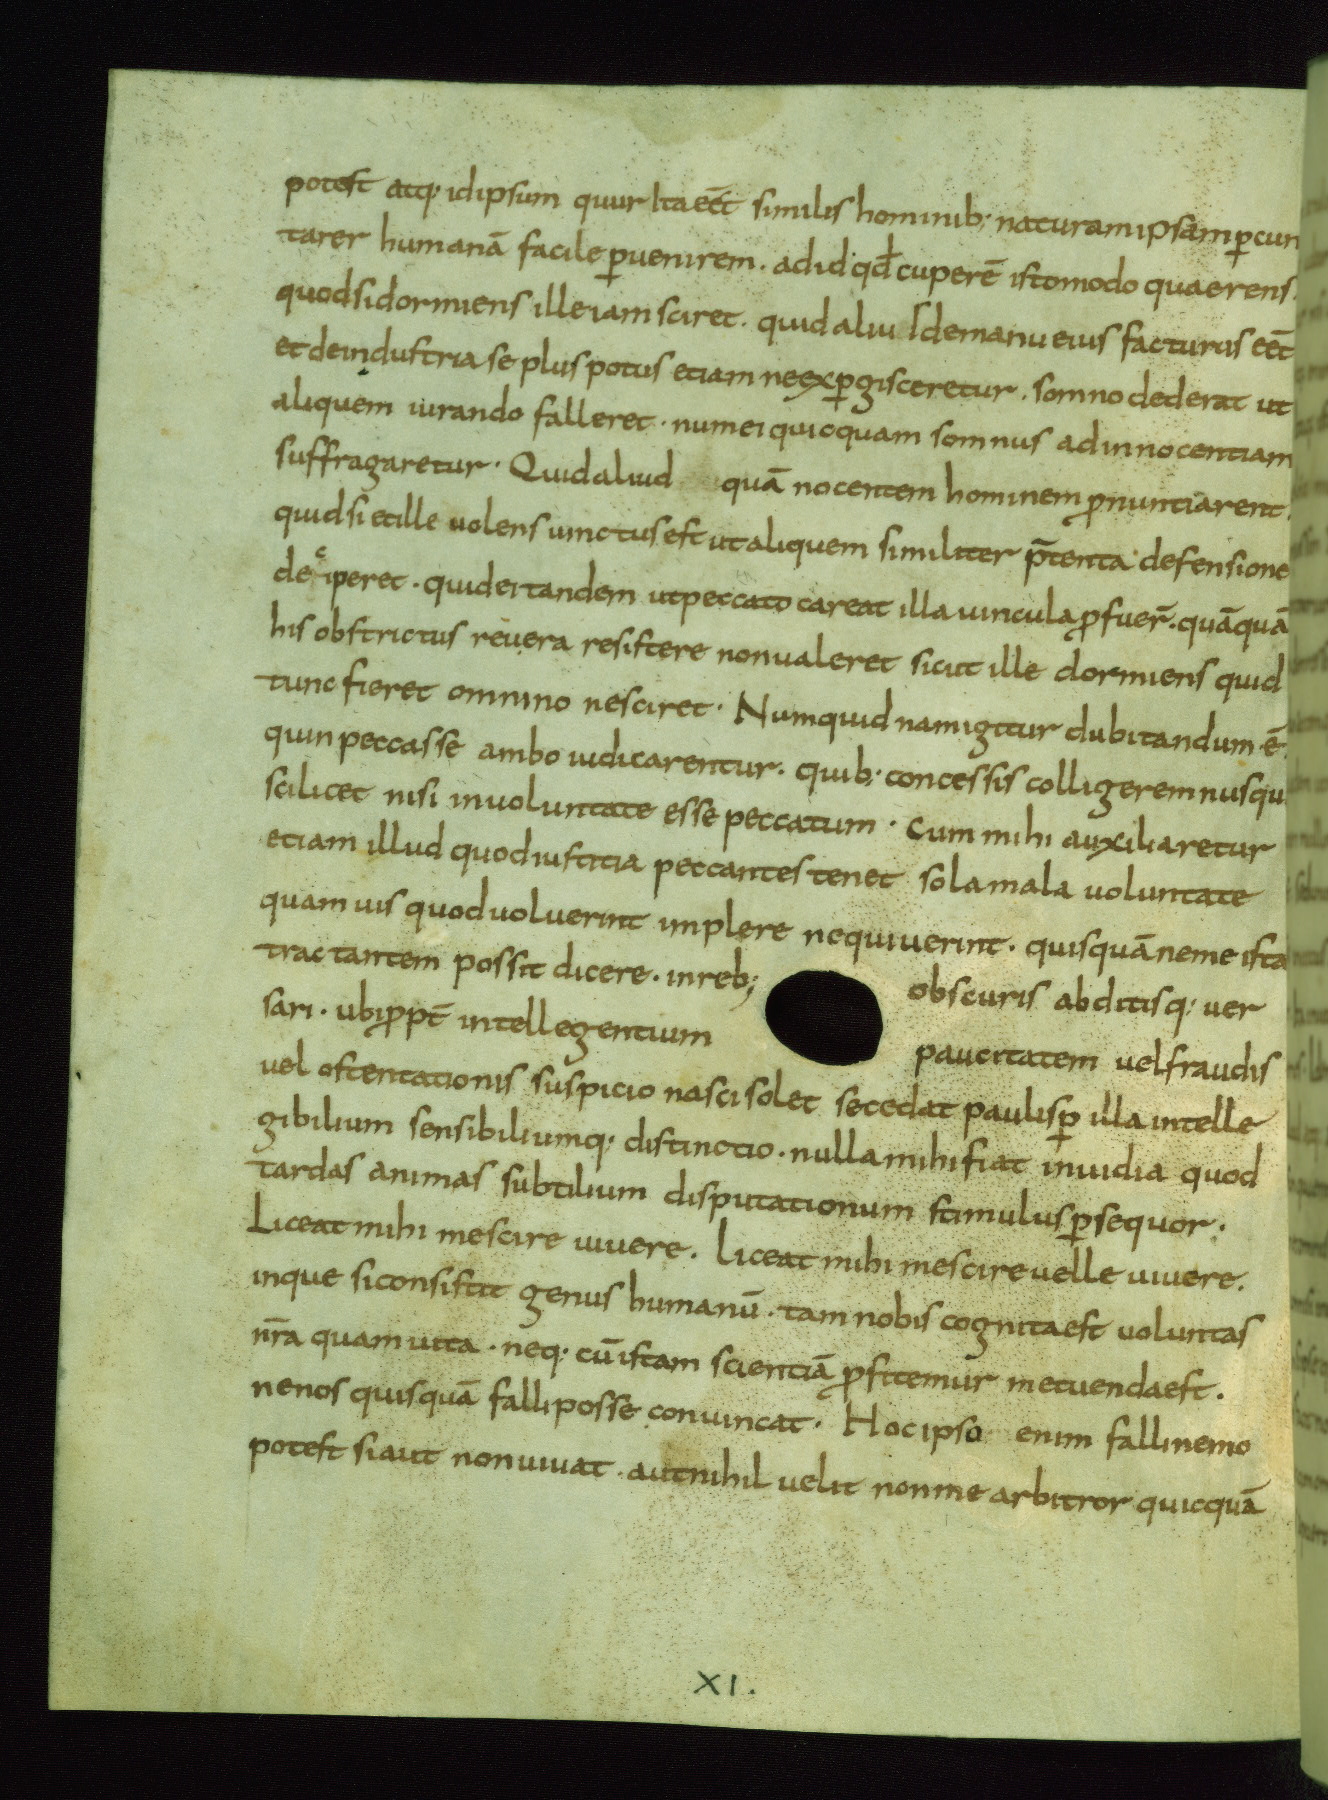 potest atq; idipsum quur ita eēt similis hominib; naturam ipsam ꝑcun
tarer humanā facile ꝑuenirem. ad id qđ cuperē isto modo quaerens.
quod si dormiens ille iam sciret. quid aliu de manu eius facturus eēt
et de industria se plus potus etiam ne exꝑgisceretur. somno dederat ut
aliquem iurando falleret. num ei quicquam somnus ad innocentiam
suffragaretur. Quid aliud quā nocentem hominem ꝓnuntiarent.
quid si et ille uolens uinctus est ut aliquem similiter p̄tenta defensione
deciperet. quid ei tandem ut peccato careat illa uincula ꝓfuer̄. quāquā
his obstrictus reuera resistere non ualeret sicut ille dormiens quid
tunc fieret omnino nesciret. Numquidnam igitur dubitandum ē
quin peccasse ambo iudicarentur. quib; concessis colligerem nusqu
scilicet nisi in uoluntate esse peccatum. cum mihi auxiliaretur
etiam illud quod iustitia peccantes tenet sola mala uoluntate
quamuis quod uoluerint implere nequiuerint. quisquā ne me ista
tractantem possit dicere. in reb; obscuris abditisq; uer
sari. ubi ꝓpt̄ intellegentium paucitatem uel fraudis
uel ostentationis suspicio nasci solet secedat paulisꝑ illa intelle
gibilium sensibiliumq; distinctio. nulla mihi fiat inuidia quod
tardas animas subtilium disputationum stimulus ꝑsequor.
Liceat mihi me scire uiuere. Liceat mihi me scire uelle uiuere.
inque si consistit genus humanū. tam nobis cognita est uoluntas
nr̄a quam uita. neq; cū istam scientiā ꝓfitemur metuenda est.
ne nos quisquā falli posse conuincat. Hoc ipso enim falli nemo
potest si aut non uiuat. aut nihil uelit non me arbitror quicquā
XI.